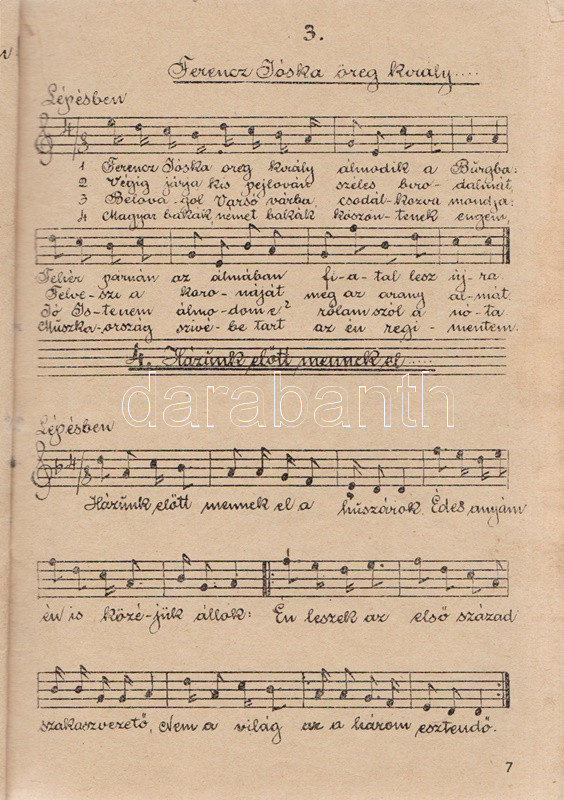 3.
Ferencz Jóska öreg király....
Lépésben
1 Ferencz Jóska öreg király álmodik a Burgba:
2 Végig járja kis pejlován széles biro- dalmát,
3 Belova-gol Varsó várba, csodál-kozva mondja:
4 Magyar bakák, német bakák köszön-tenek engem,
Fehér párnán az álmában fi-a-tal lesz új-ra
Felve-szi a koro-náját meg az arany al-mát.
Jó Is-tenem álmo-dom e? rólam szól a nó-ta
Muszka-ország szive-be tart az én regi-mentem.
4. Házunk előtt mennek el.....
darabanth
Lépésben
Házunk előtt mennek el a huszárok. Édes anyám
én is közé-jük állok: Én leszek az első század
szakaszvezető, Nem a világ az a három esztendő.
7